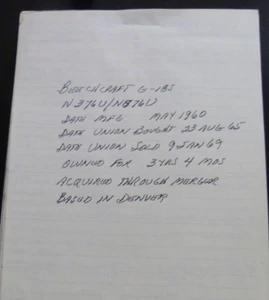 BEECHCRAFT G-18S
N376U/N876U
DATE MFG MAY 1960
DATE UNION BOUGHT 23 AUG 65
DATE UNION SOLD 9 JAN 69
OWNED FOR 3 YRS 4 MOS
ACQUIRED THROUGH MERGER
BASED IN DENVER